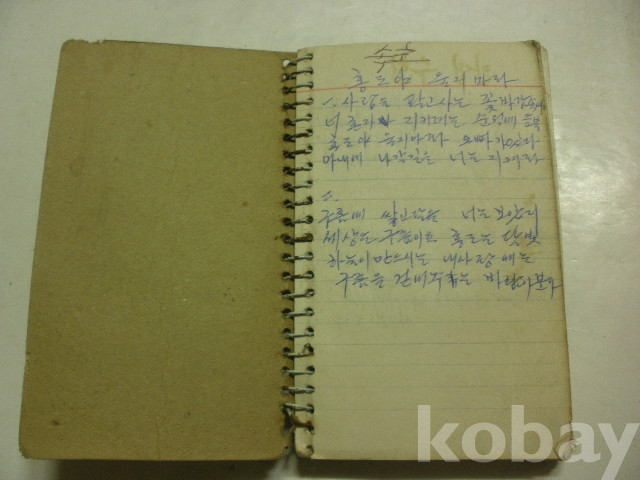 홍도야 우지마라
1. 사랑을 팔고사는 꽃바람속에
너 혼자 지키려는 순정에 등불
홍도야 우지마라 오빠가 있다
아내에 나갈길을 너는 지켜라
2.
구름에 쌓인 달을 너는 보았지
세상은 구름이요 홍도는 달빛
하늘이 만드시는 내사랑에는
구름을 걷어주는 바람이 분다
kobay